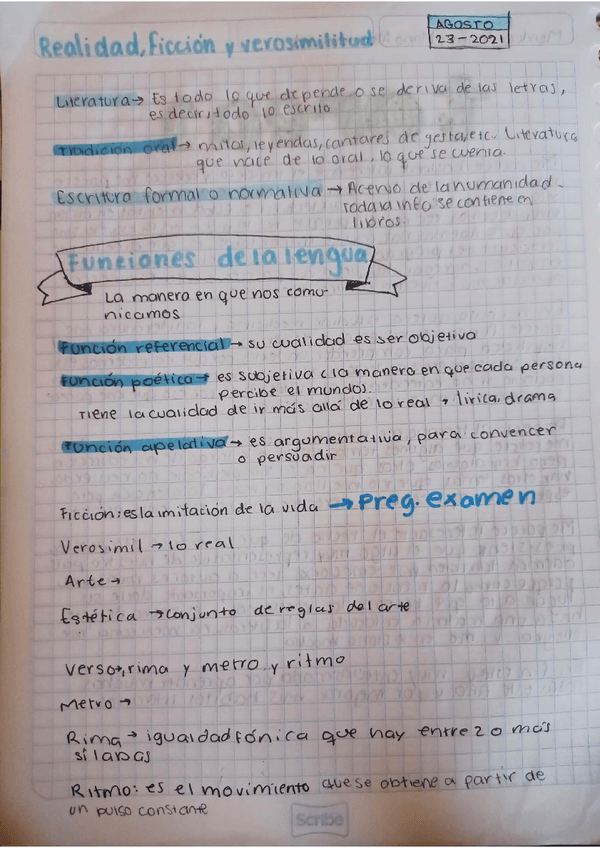 AGOSTO
23-2021
Realidad, Ficción y verosimilitud
Literatura→ Es todo lo que depende o se deriva de las letras,
es decir, todo lo escrito
Tradición oral→ mitos, leyendas, cantares de gesta, etc. Literatura
que nace de lo oral, lo que se cuenta.
Escritura formal o normativa → Acervo de la humanidad.
Toda la info se contiene en
libros.
Funciones de la lengua
La manera en que nos comu-
nicamos
Función referencial→ su cualidad es ser objetiva
Función poética→ es subjetiva (la manera en que cada persona
percibe el mundo).
Tiene la cualidad de ir más allá de lo real, lírica, drama
Función apelativa→ es argumentativa, para convencer
o persuadir
Ficción: es la imitación de la vida → Preg. examen
Verosimil→ lo real
Arte→
Estética →conjunto de reglas del arte
Verso→, rima y metro y ritmo
Metro →
Rima→ igualdad fónica que hay entre 2 o más
sílabas
Ritmo: es el movimiento que se obtiene a partir de
un pulso constante
Scribe